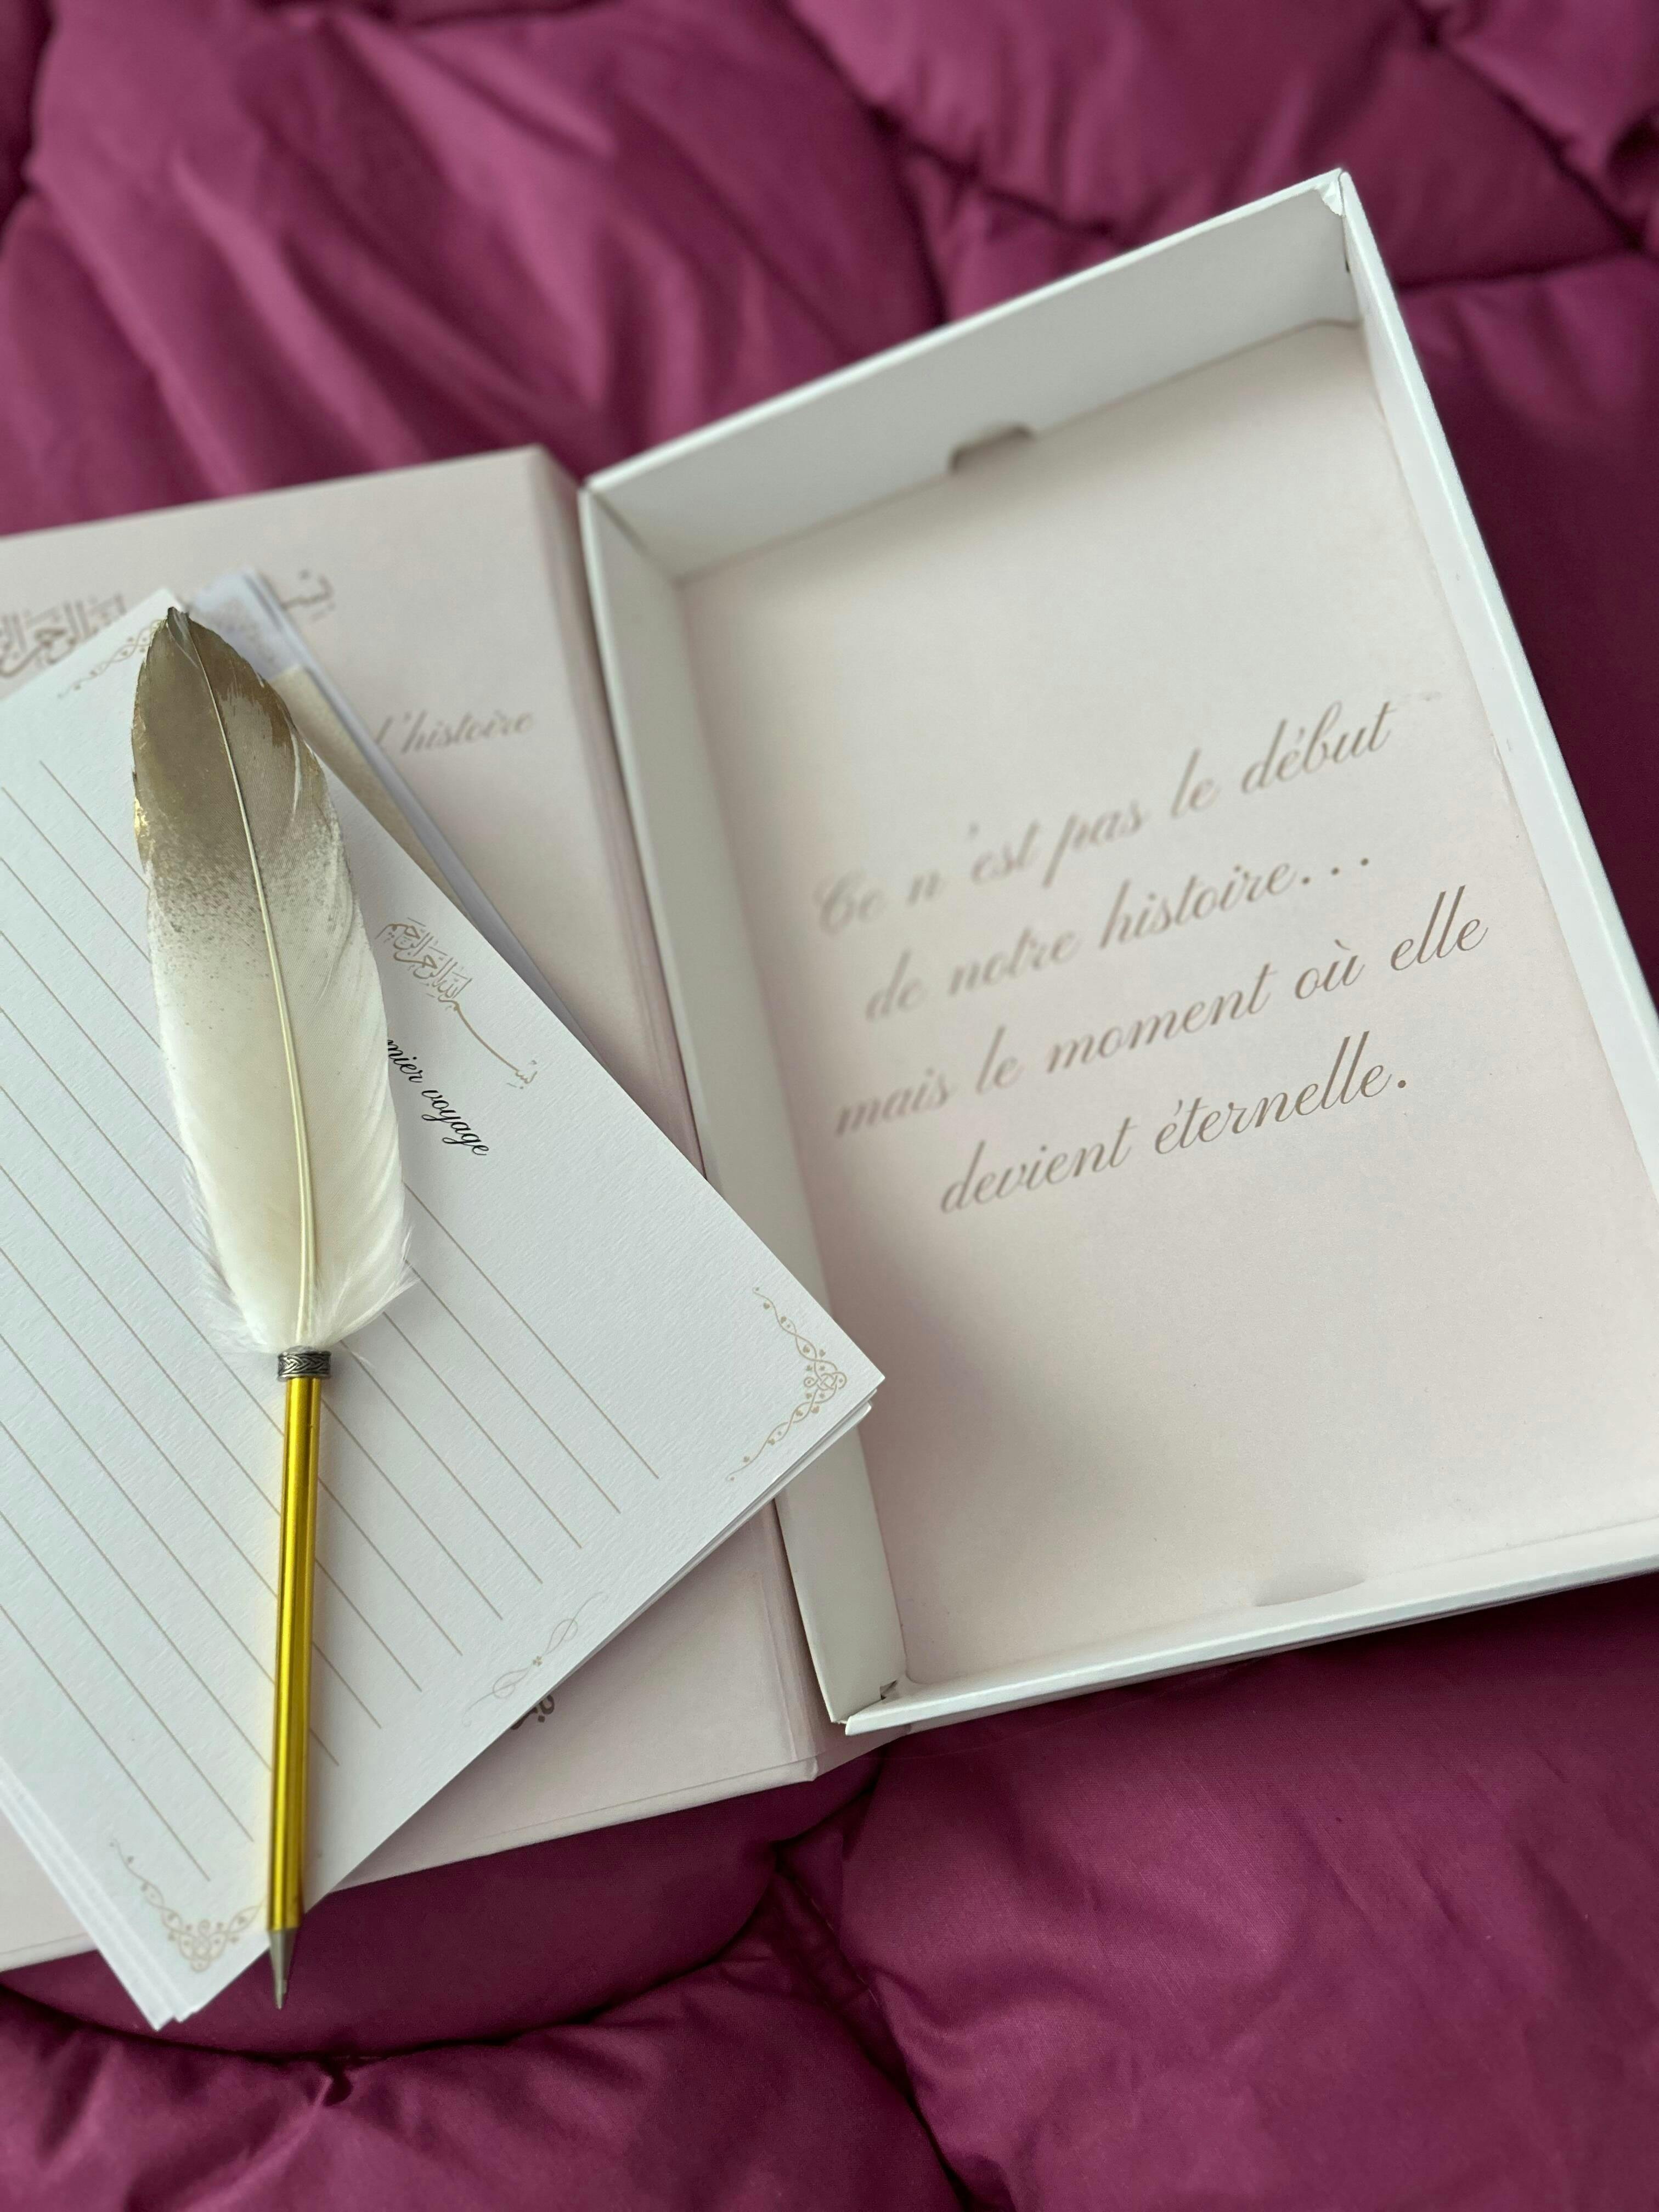 بسم الله الرحمن الرحيم
l'histoire
بسم الله الرحمن الرحيم
mier voyage
Ce n'est pas le début
de notre histoire...
mais le moment où elle
devient éternelle.